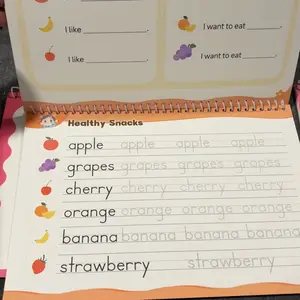 I like ____________.
I want to eat ________.
I like ____________.
I want to eat ________.
Healthy Snacks
apple apple apple apple
grapes grapes grapes grapes
cherry cherry cherry cherry
orange orange orange orange
banana banana banana banana
strawberry strawberry